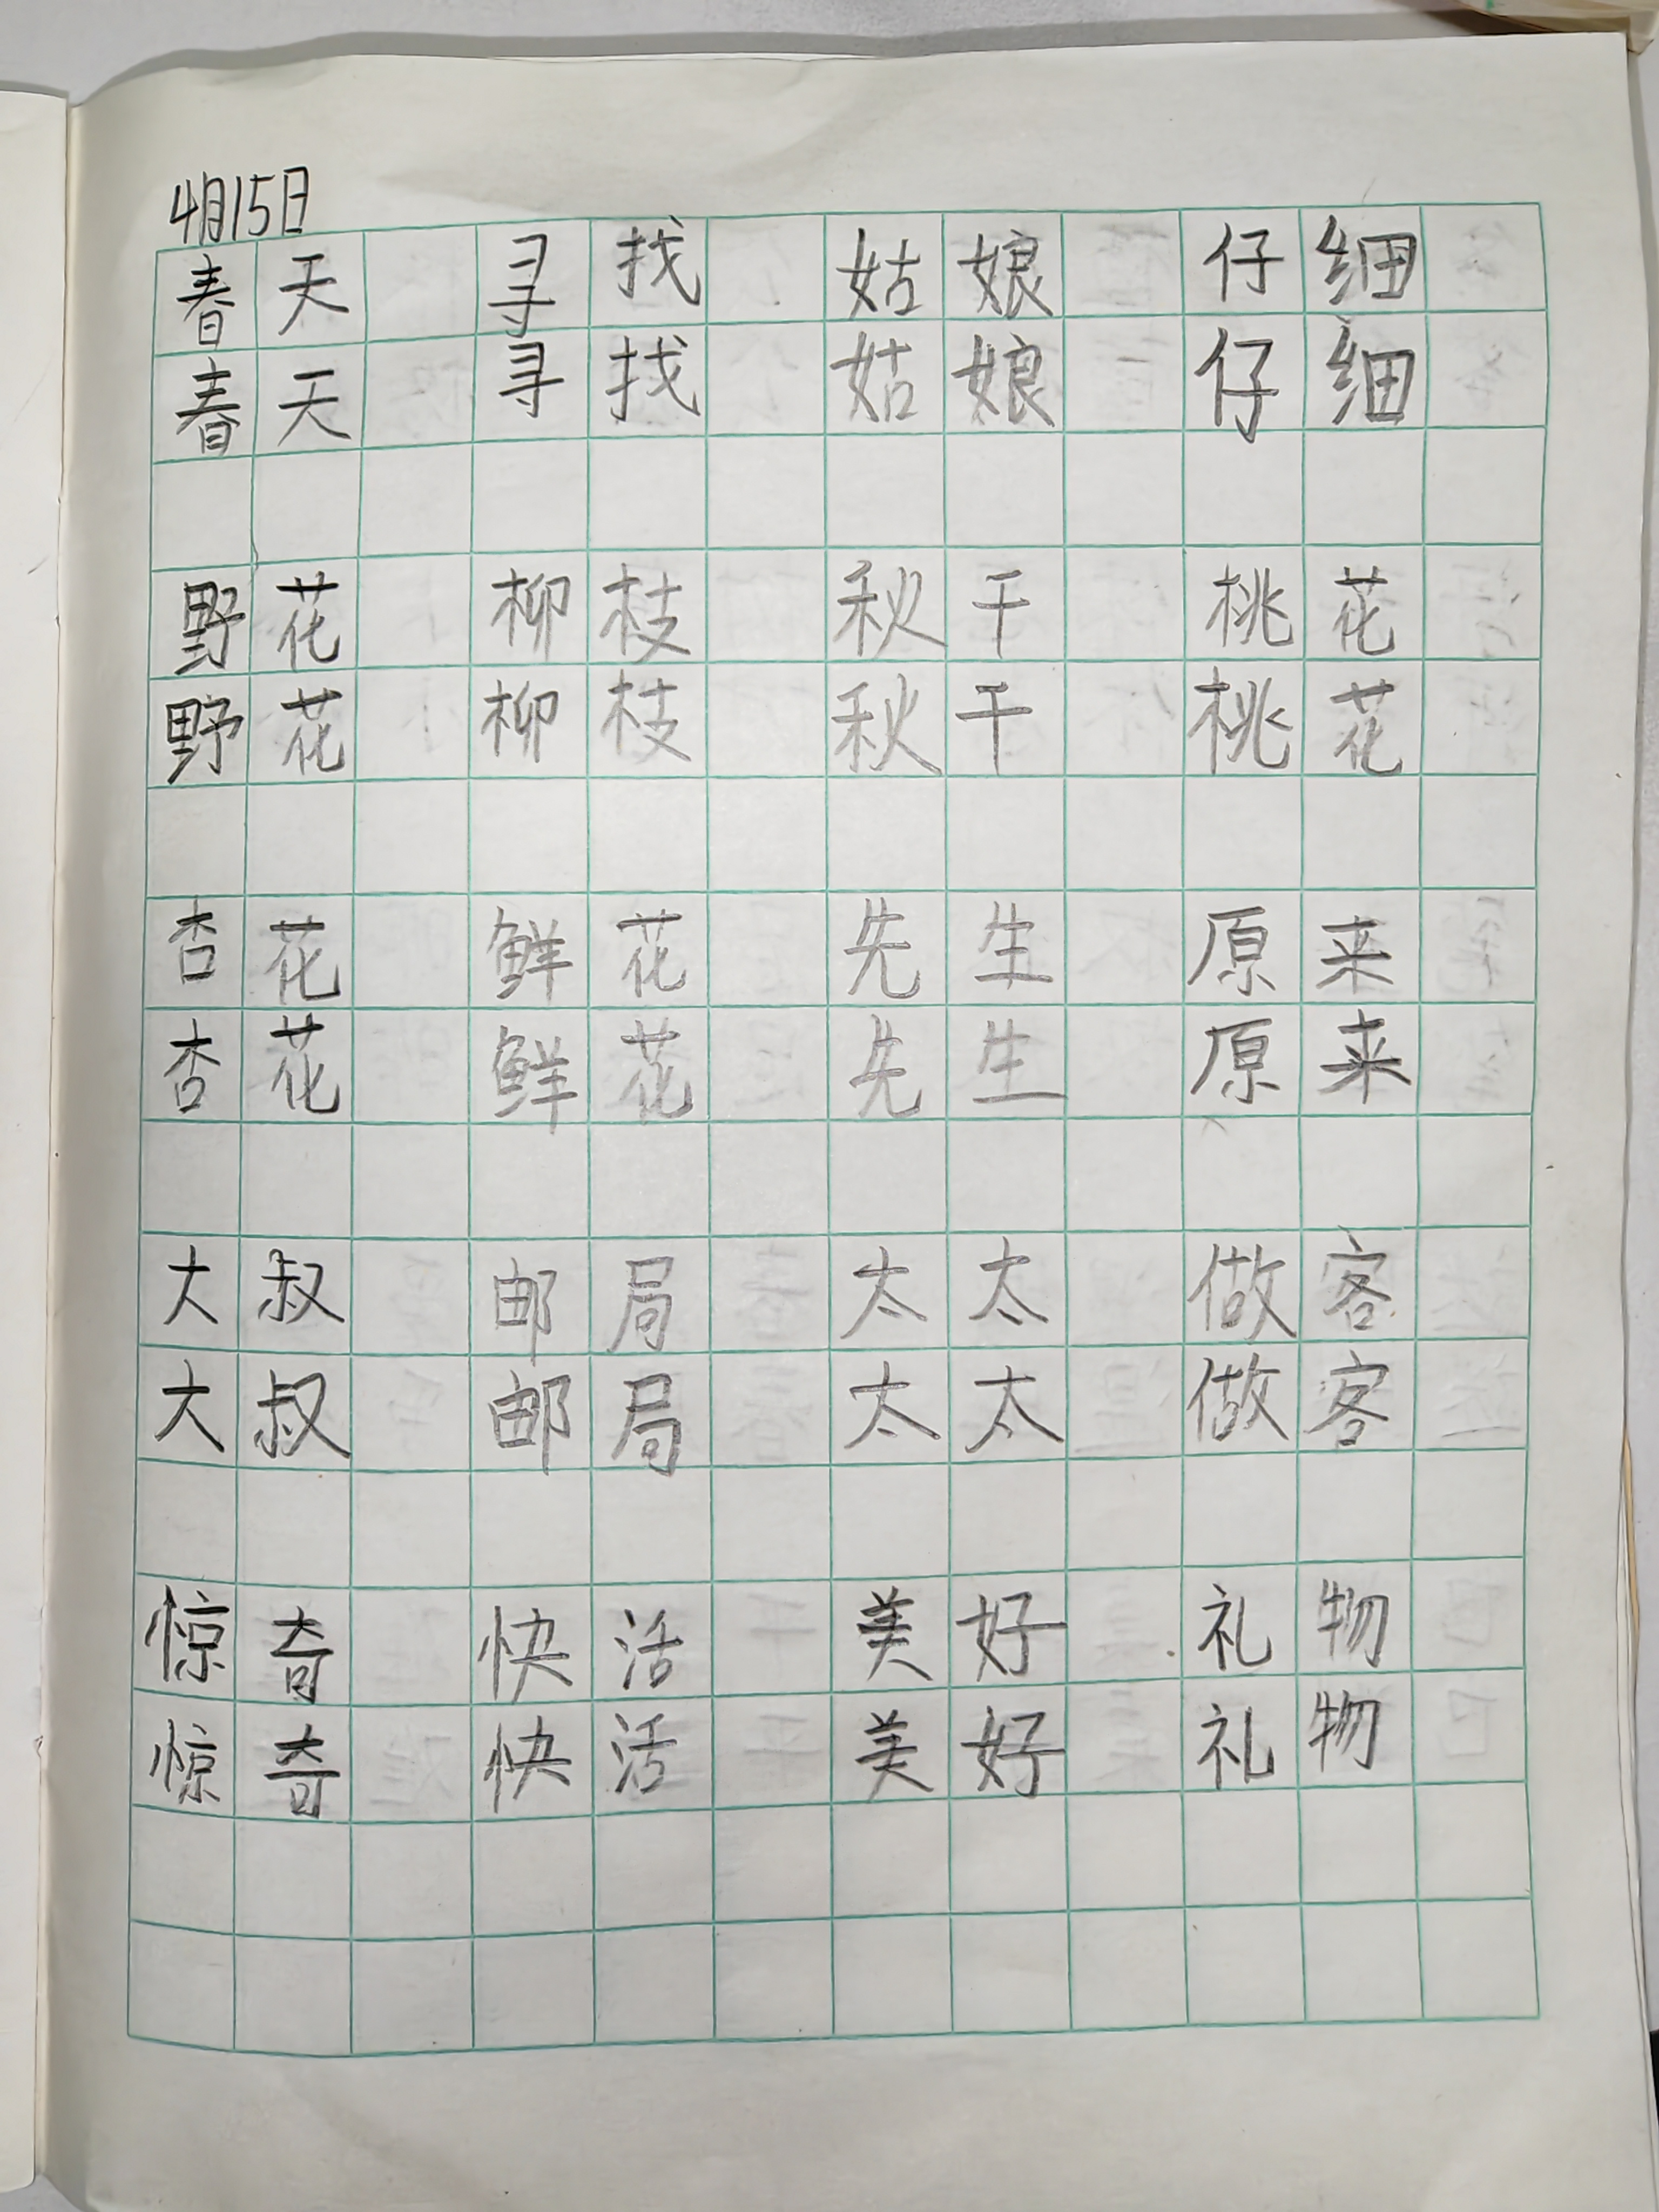 4月15日
春天 寻找 姑娘 仔细
春天 寻找 姑娘 仔细
野花 柳枝 秋千 桃花
野花 柳枝 秋千 桃花
杏花 鲜花 先生 原来
杏花 鲜花 先生 原来
大叔 邮局 太太 做客
大叔 邮局 太太 做客
惊奇 快活 美好 礼物
惊奇 快活 美好 礼物